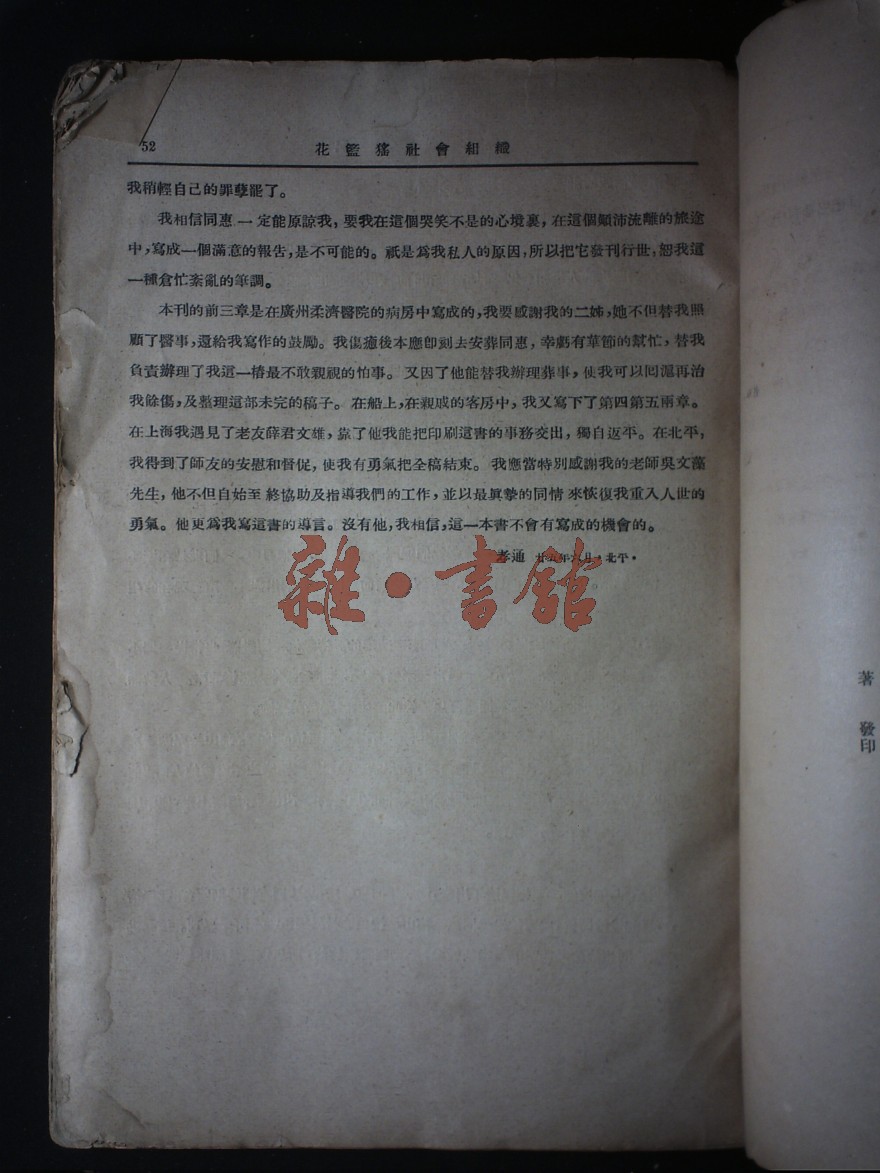 52
花籃猺社會組織
我稍輕自己的罪孽罷了。
我相信同惠一定能原諒我，要我在這個哭笑不是的心境裏，在這個顛沛流離的旅途
中，寫成一個滿意的報告，是不可能的。祇是爲我私人的原因，所以把它發刊行世，恕我這
一種倉忙紊亂的筆調。
本刊的前三章是在廣州柔濟醫院的病房中寫成的，我要感謝我的二姊，她不但替我照
顧了醫事，還給我寫作的鼓勵。我傷癒後本應卽刻去安葬同惠，幸虧有華節的幫忙，替我
負責辦理了我這一樁最不敢親視的怕事。又因了他能替我辦理葬事，使我可以囘滬再治
我餘傷，及整理這部未完的稿子。在船上，在親戚的客房中，我又寫下了第四第五兩章。
在上海我遇見了老友薛君文雄，靠了他我能把印刷這書的事務交出，獨自返平。在北平，
我得到了師友的安慰和督促，使我有勇氣把全稿結束。我應當特別感謝我的老師吳文藻
先生，他不但自始至終協助及指導我們的工作，並以最眞摯的同情來恢復我重入人世的
勇氣。他更爲我寫這書的導言。沒有他，我相信，這一本書不會有寫成的機會的。
孝通 廿五年六月，北平。
雜·書館
著
發印